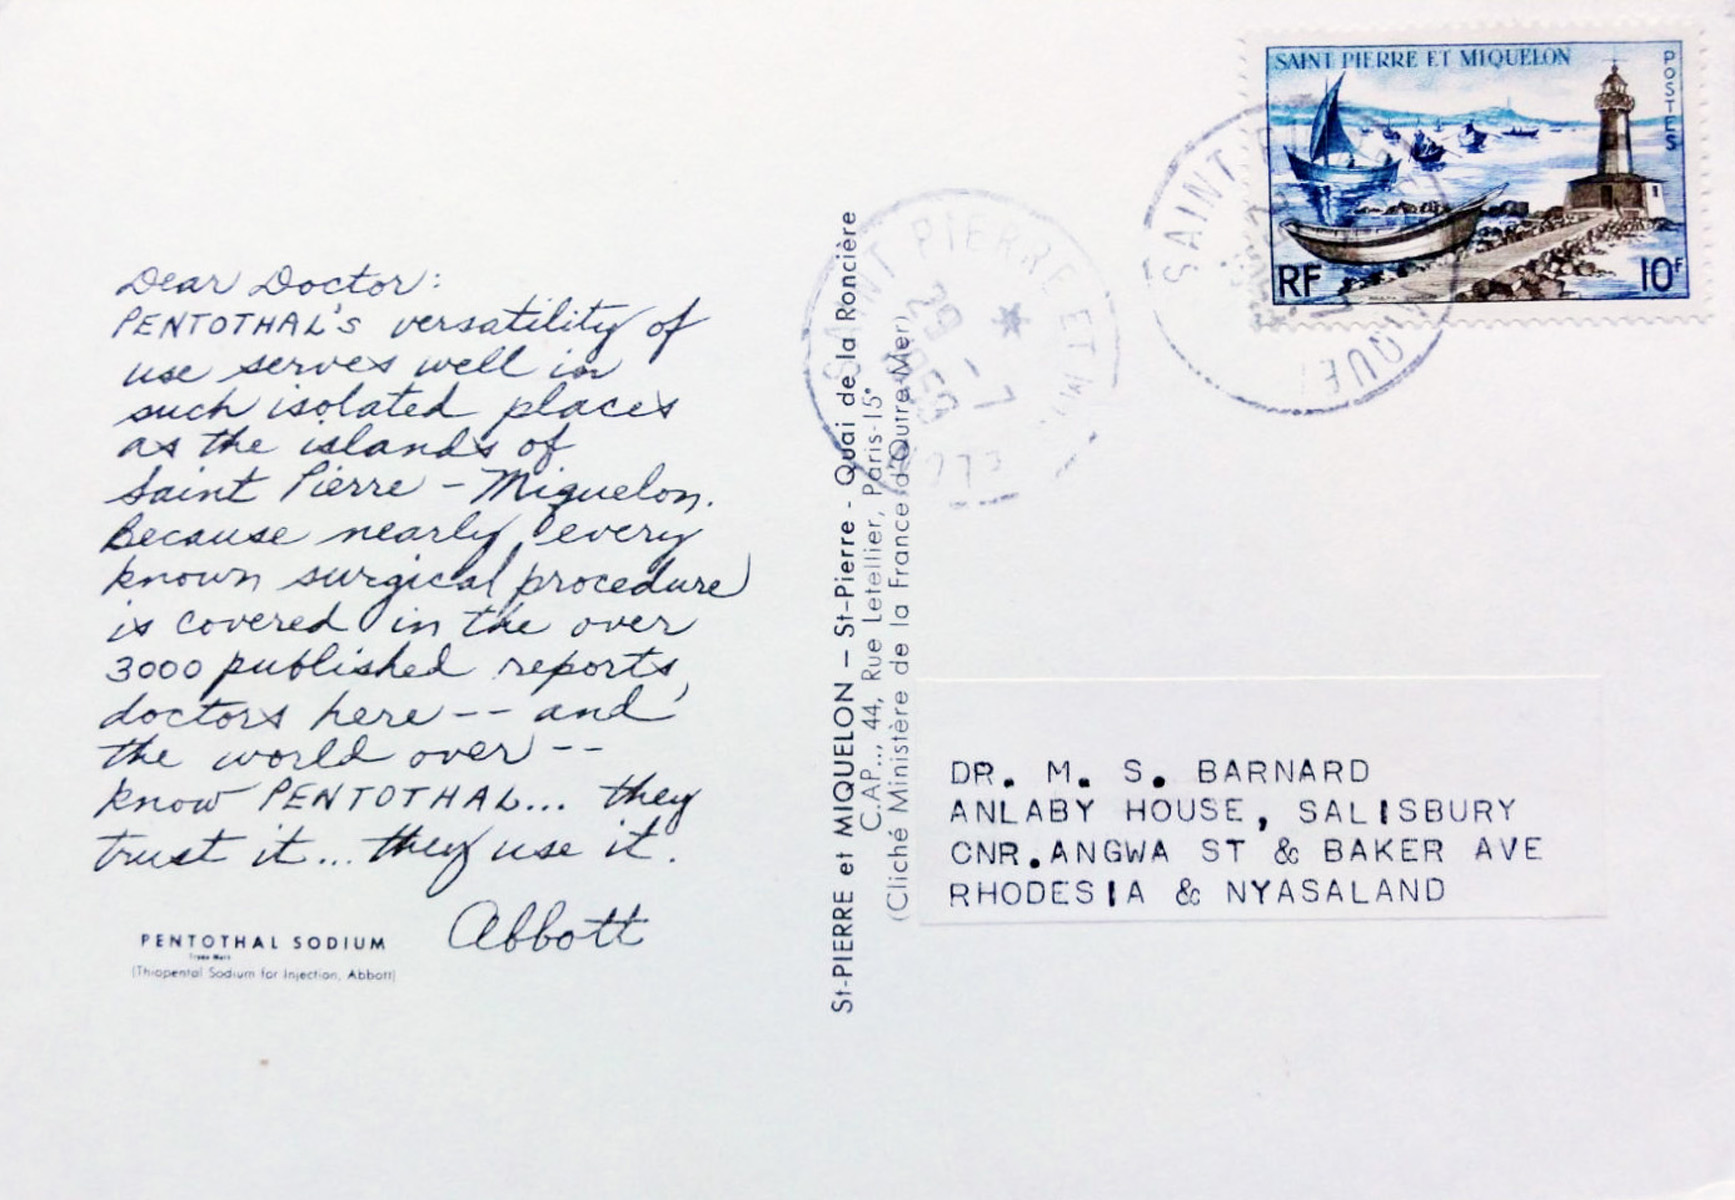 Dear Doctor:
PENTOTHAL'S versatility of
use serves well in
such isolated places
as the islands of
Saint Pierre - Miquelon.
Because nearly every
known surgical procedure
is covered in the over
3000 published reports,
doctors here -- and
the world over --
know PENTOTHAL... they
trust it... they use it.
Abbott
PENTOTHAL SODIUM
Trade Mark
(Thiopental Sodium for Injection, Abbott)
St-PIERRE et MIQUELON — St-Pierre - Quai de la Roncière
C.A.P.., 44, Rue Letellier, Paris-15°
(Cliché Ministère de la France d'Outre-Mer)
SAINT PIERRE ET
29 - 7
SAINT
SAINT PIERRE ET MIQUELON
POSTES
RF
10F
DR. M. S. BARNARD
ANLABY HOUSE, SALISBURY
CNR.ANGWA ST & BAKER AVE
RHODESIA & NYASALAND